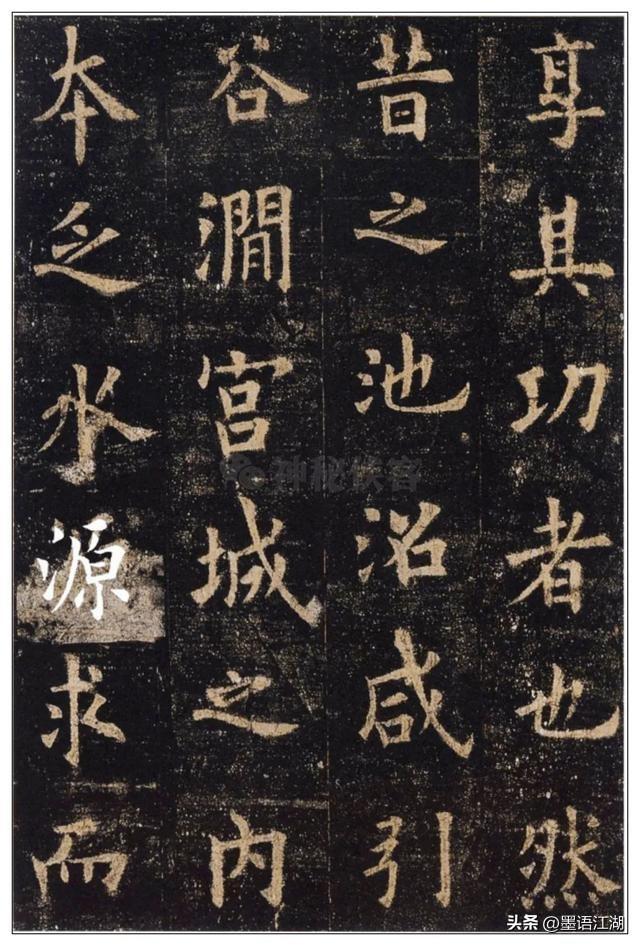 享其功者也然
昔之池沼咸引
谷澗宫城之内
本乏水源求而
神秘侠客
头条 @墨语江湖